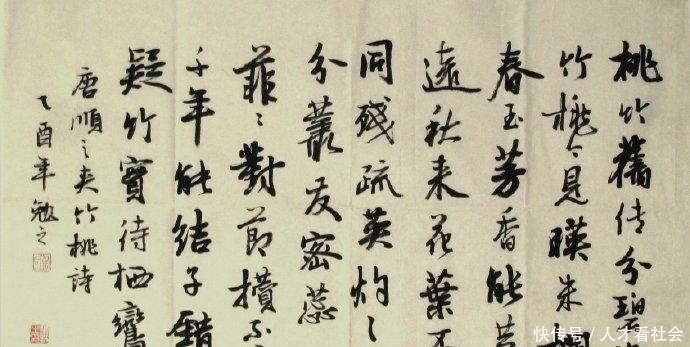 桃竹舊传分碧
竹桃今見暎朱
春至芳香能
遠秋来花葉不
同殘疏英灼々
分叢发密蕊
菲々對節攢不
千年能結子錯
疑竹實待栖鸞
唐順之夾竹桃詩
乙酉年勉之
快传号 / 人才看社会